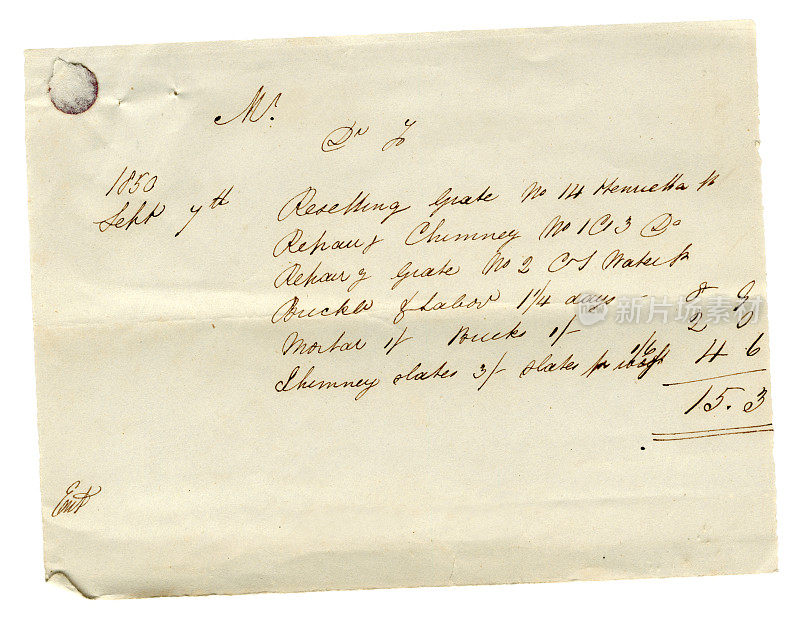 Mr.
Dr To
1850
Sept 7th Resetting Grate No 14 Henrietta st
Repairg Chimney No 1 3 Do
Repairg Grate No 2 Water st
& Labor 1 1/4 days 8 9
Mortar 1/ Bricks 1/ 2 0
Chimney slates 3/ slates for 1/6 4 6
15.3
Entd